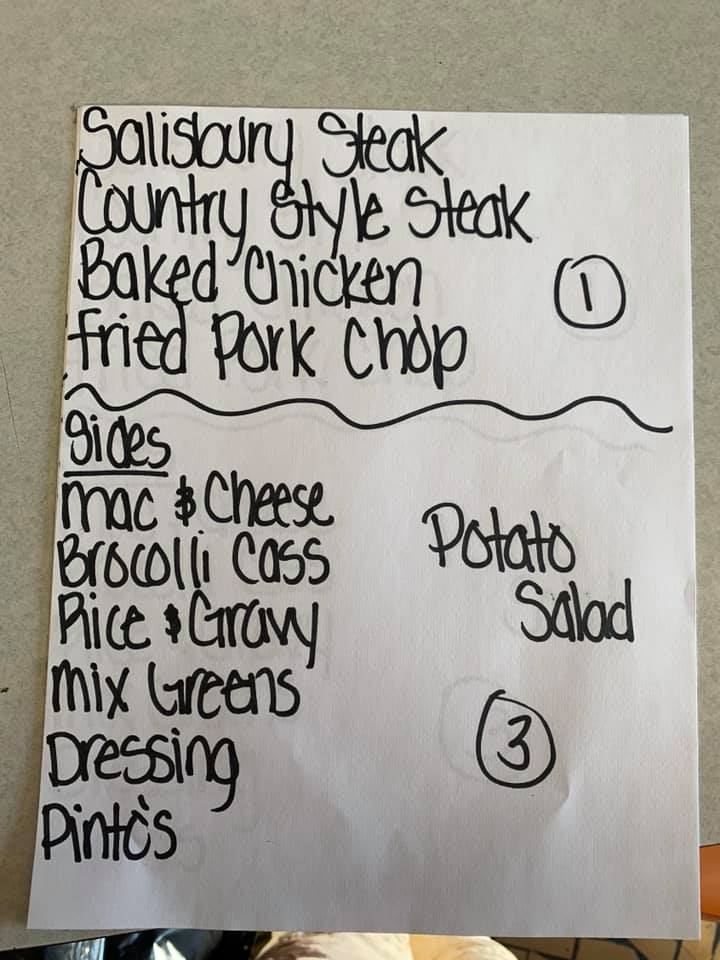 Salisbury Steak
Country Style Steak
Baked Chicken
Fried Pork Chop
1
Sides
Mac & Cheese
Brocolli Cass
Rice & Gravy
Mix Greens
Dressing
Pinto's
Potato
Salad
3